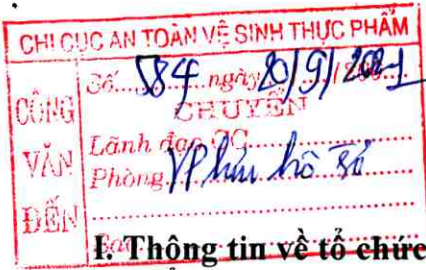 CHI CỤC AN TOÀN VỆ SINH THỰC PHẨM
CÔNG VĂN ĐẾN
Số 584 ngày 20/9/2021
CHUYỂN
Lãnh đạo CC
Phòng VP lưu hồ sơ
I. Thông tin về tổ chức